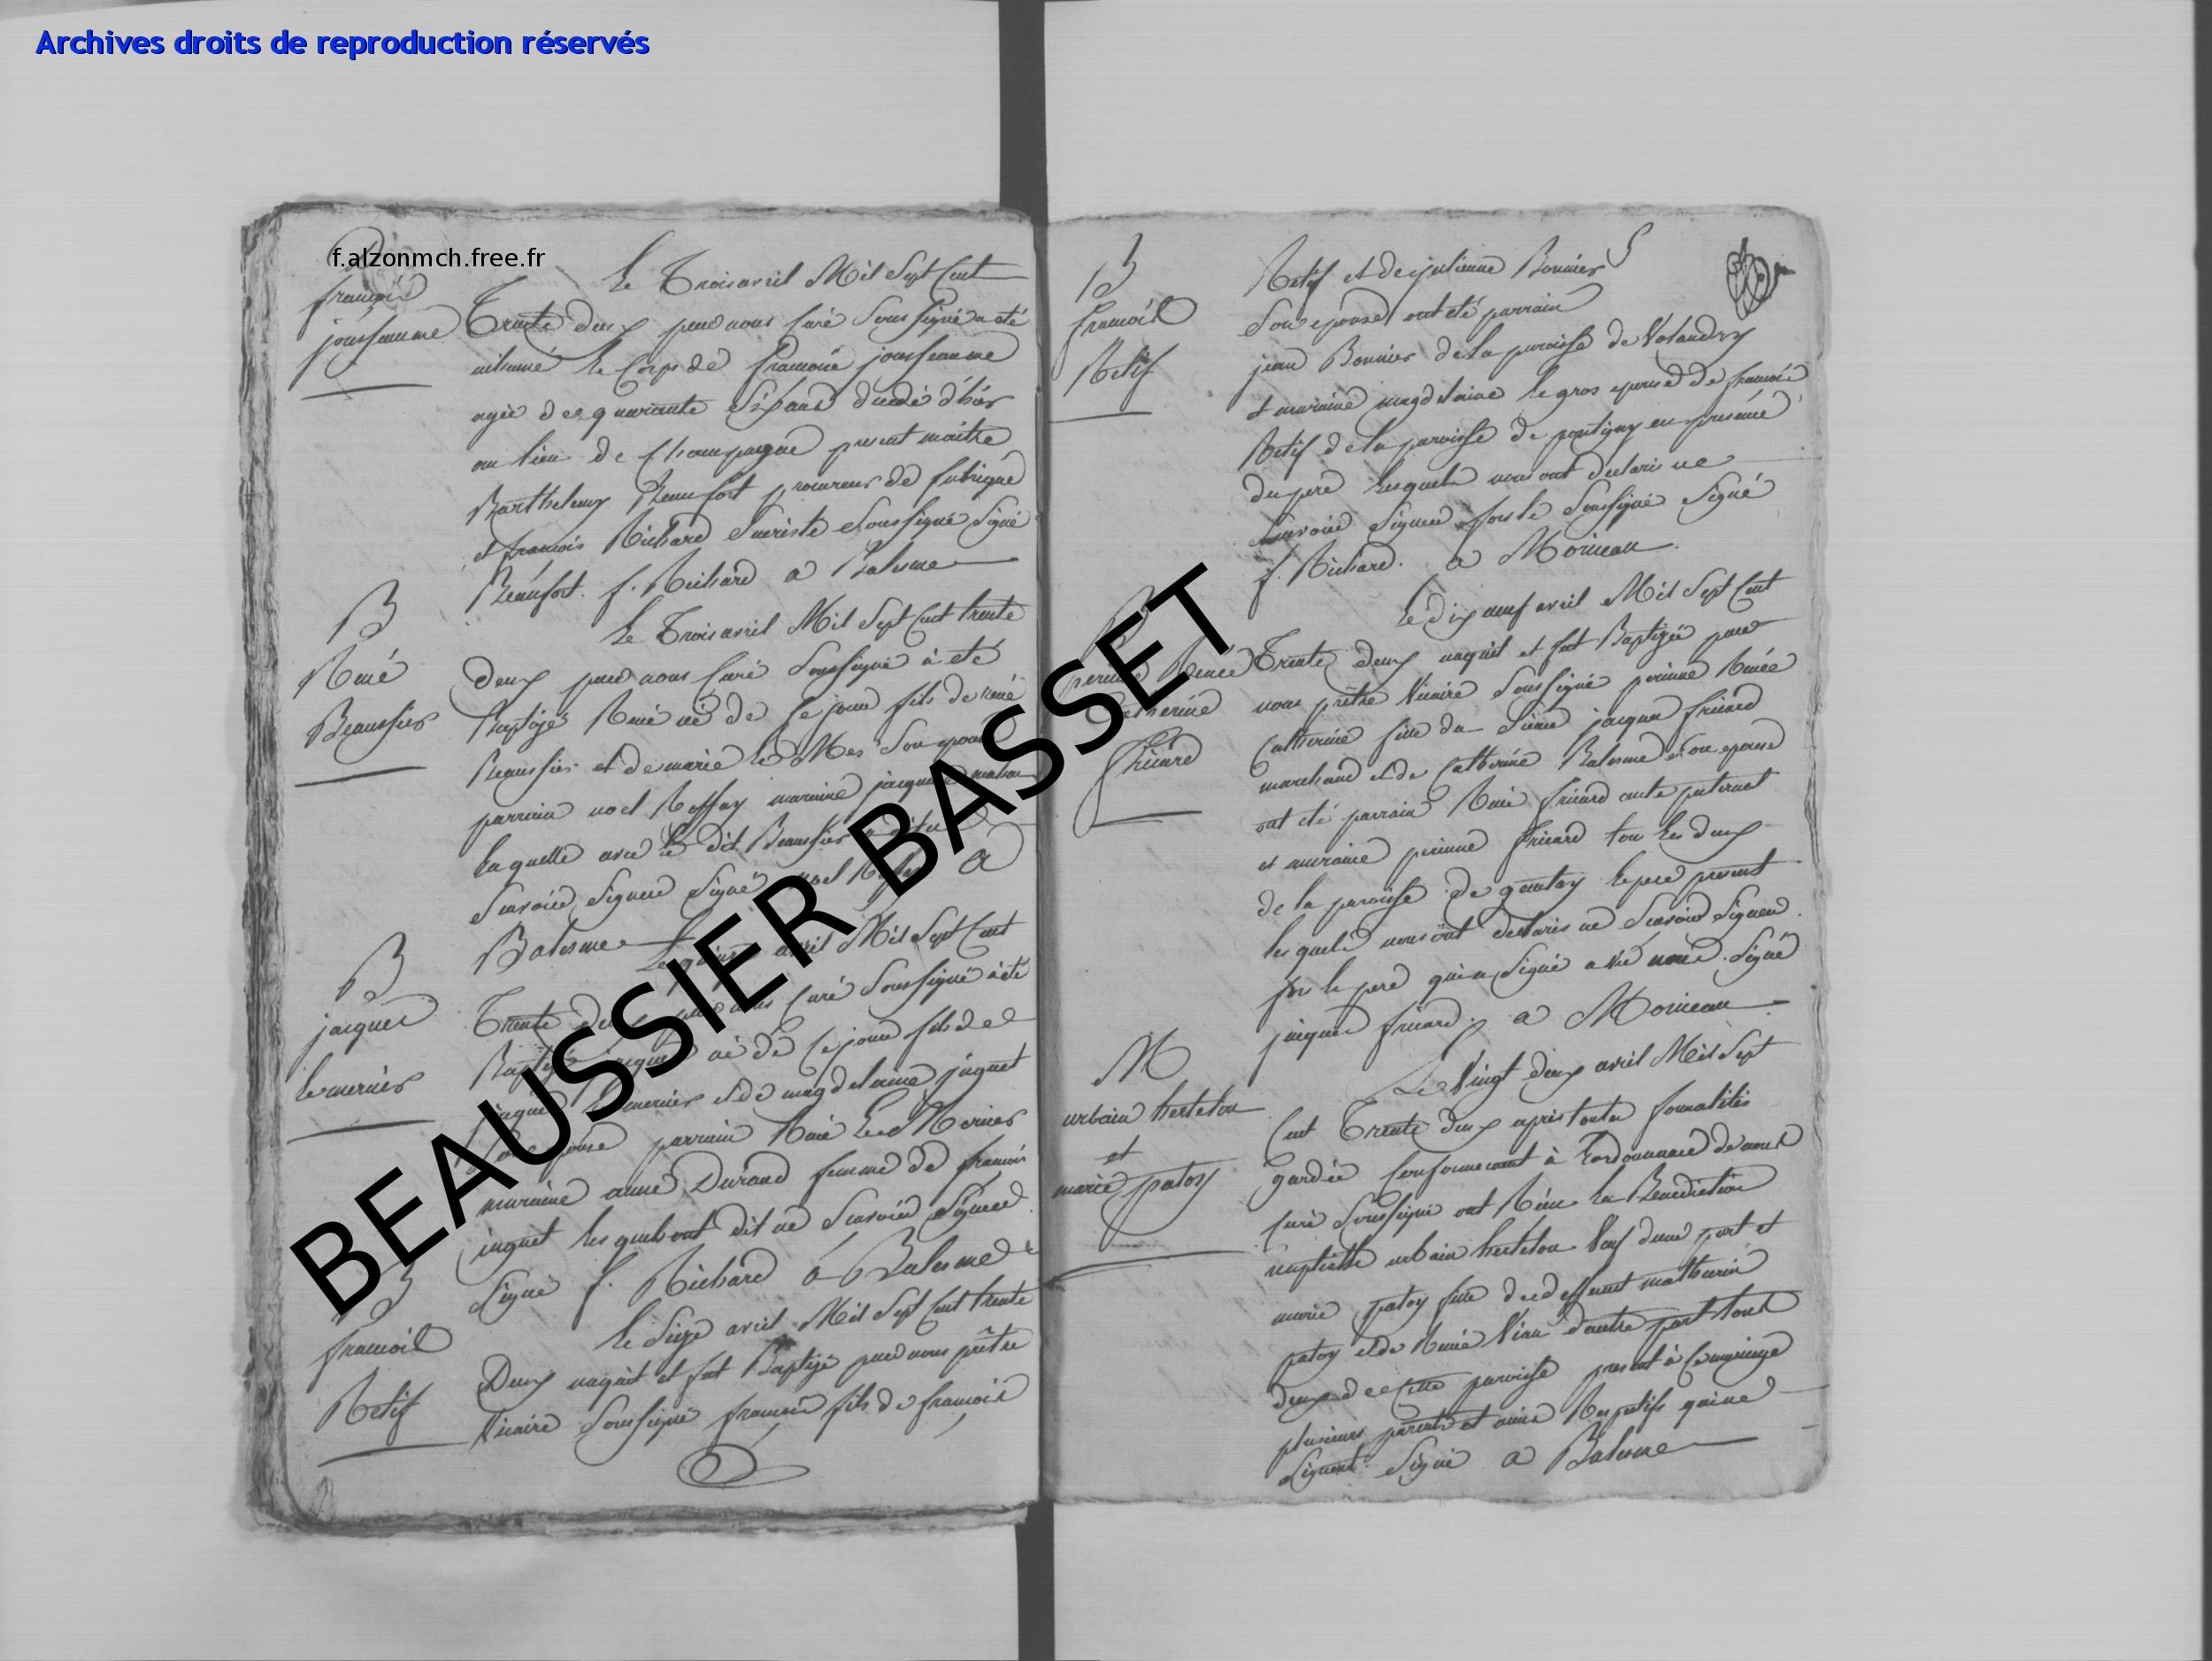 Archives droits de reproduction réservés
f.alzonmch.free.fr
BEAUSSIER BASSET
françois
jousseaume
Le Trois avril Mil Sept Cent
Trente deux par nous Curé Soussigné a été
inhumé le Corps de françois jousseaume
agée de quarante Six ans
au lieu de Champagne present maitre
Barthelemy Beaufort procureur de fabrique
et francois Richard Sacriste Soussigné Signé
Beaufort. f. Richard a Balesme
B
René
Beaussier
Le Trois avril Mil Sept Cent trente
deux par nous Curé Soussigné à eté
Baptisé René né de Ce jour fils de rené
Beaussier et de marie
parrain noel Roffay maraine
laquelle avec le dit Beaussier
Scavoir Signer Signé noel a
Balesme
B
jacques
lemercier
Le avril Mil Sept Cent
Trente deux par nous Curé Soussigné à eté
Baptisé jacques né de Ce jour fils de
jacques lemercier et de magdelaine juquet
Son epouse parrain René
maraine anne Durand femme de francois
juquet lesquels ont dit ne Scavoir Signer
Signé f. Richard a Balesme
B
francois
Retif
le Seize avril Mil Sept Cent trente
Deux naquit et fut Baptisé par nous prêtre
Vicaire Soussigné francois fils de francois
B
francois
Retif
Retif et de julienne Bonnier
Son epouse ont eté parrain
jean Bonnier de la paroisse de Volandry
et maraine magdelaine le gros epouse de francois
Retif de la paroisse de pontigny en presence
du pere lesquels nous ont declaré ne
Scavoir Signer fors le Soussigné Signé
f. Richard. a Moineau
B
perinne Renée
Catherine
fricard
Le dix neuf avril Mil Sept Cent
Trente deux naquit et fut Baptisée par
nous prêtre Vicaire Soussigné perinne Renée
Catherine fille du Sieur jacques fricard
marchand et de Catherine Balesme Son epouse
ont eté parrain René fricard paternel
et maraine perinne fricard tous les deux
de la paroisse de le pere present
lesquels nous ont declaré ne Scavoir Signer
fors le pere qui a Signé avec nous. Signé
jacques fricard. a Moineau
M
urbain hertelou
et
marie patoy
Le Vingt deux avril Mil Sept
Cent Trente deux apres toutes formalités
gardée Conformement à l'ordonnance de nous
Curé Soussigné ont Recu la Benediction
nuptialle urbain hertelou Veuf d'une part et
marie patoy fille de deffunt mathurin
patoy et de Renée Viau d'autre part tous
deux de Cette paroisse present à Ce mariage
plusieurs parents et amis Respectifs
Signent Signé a Balesme